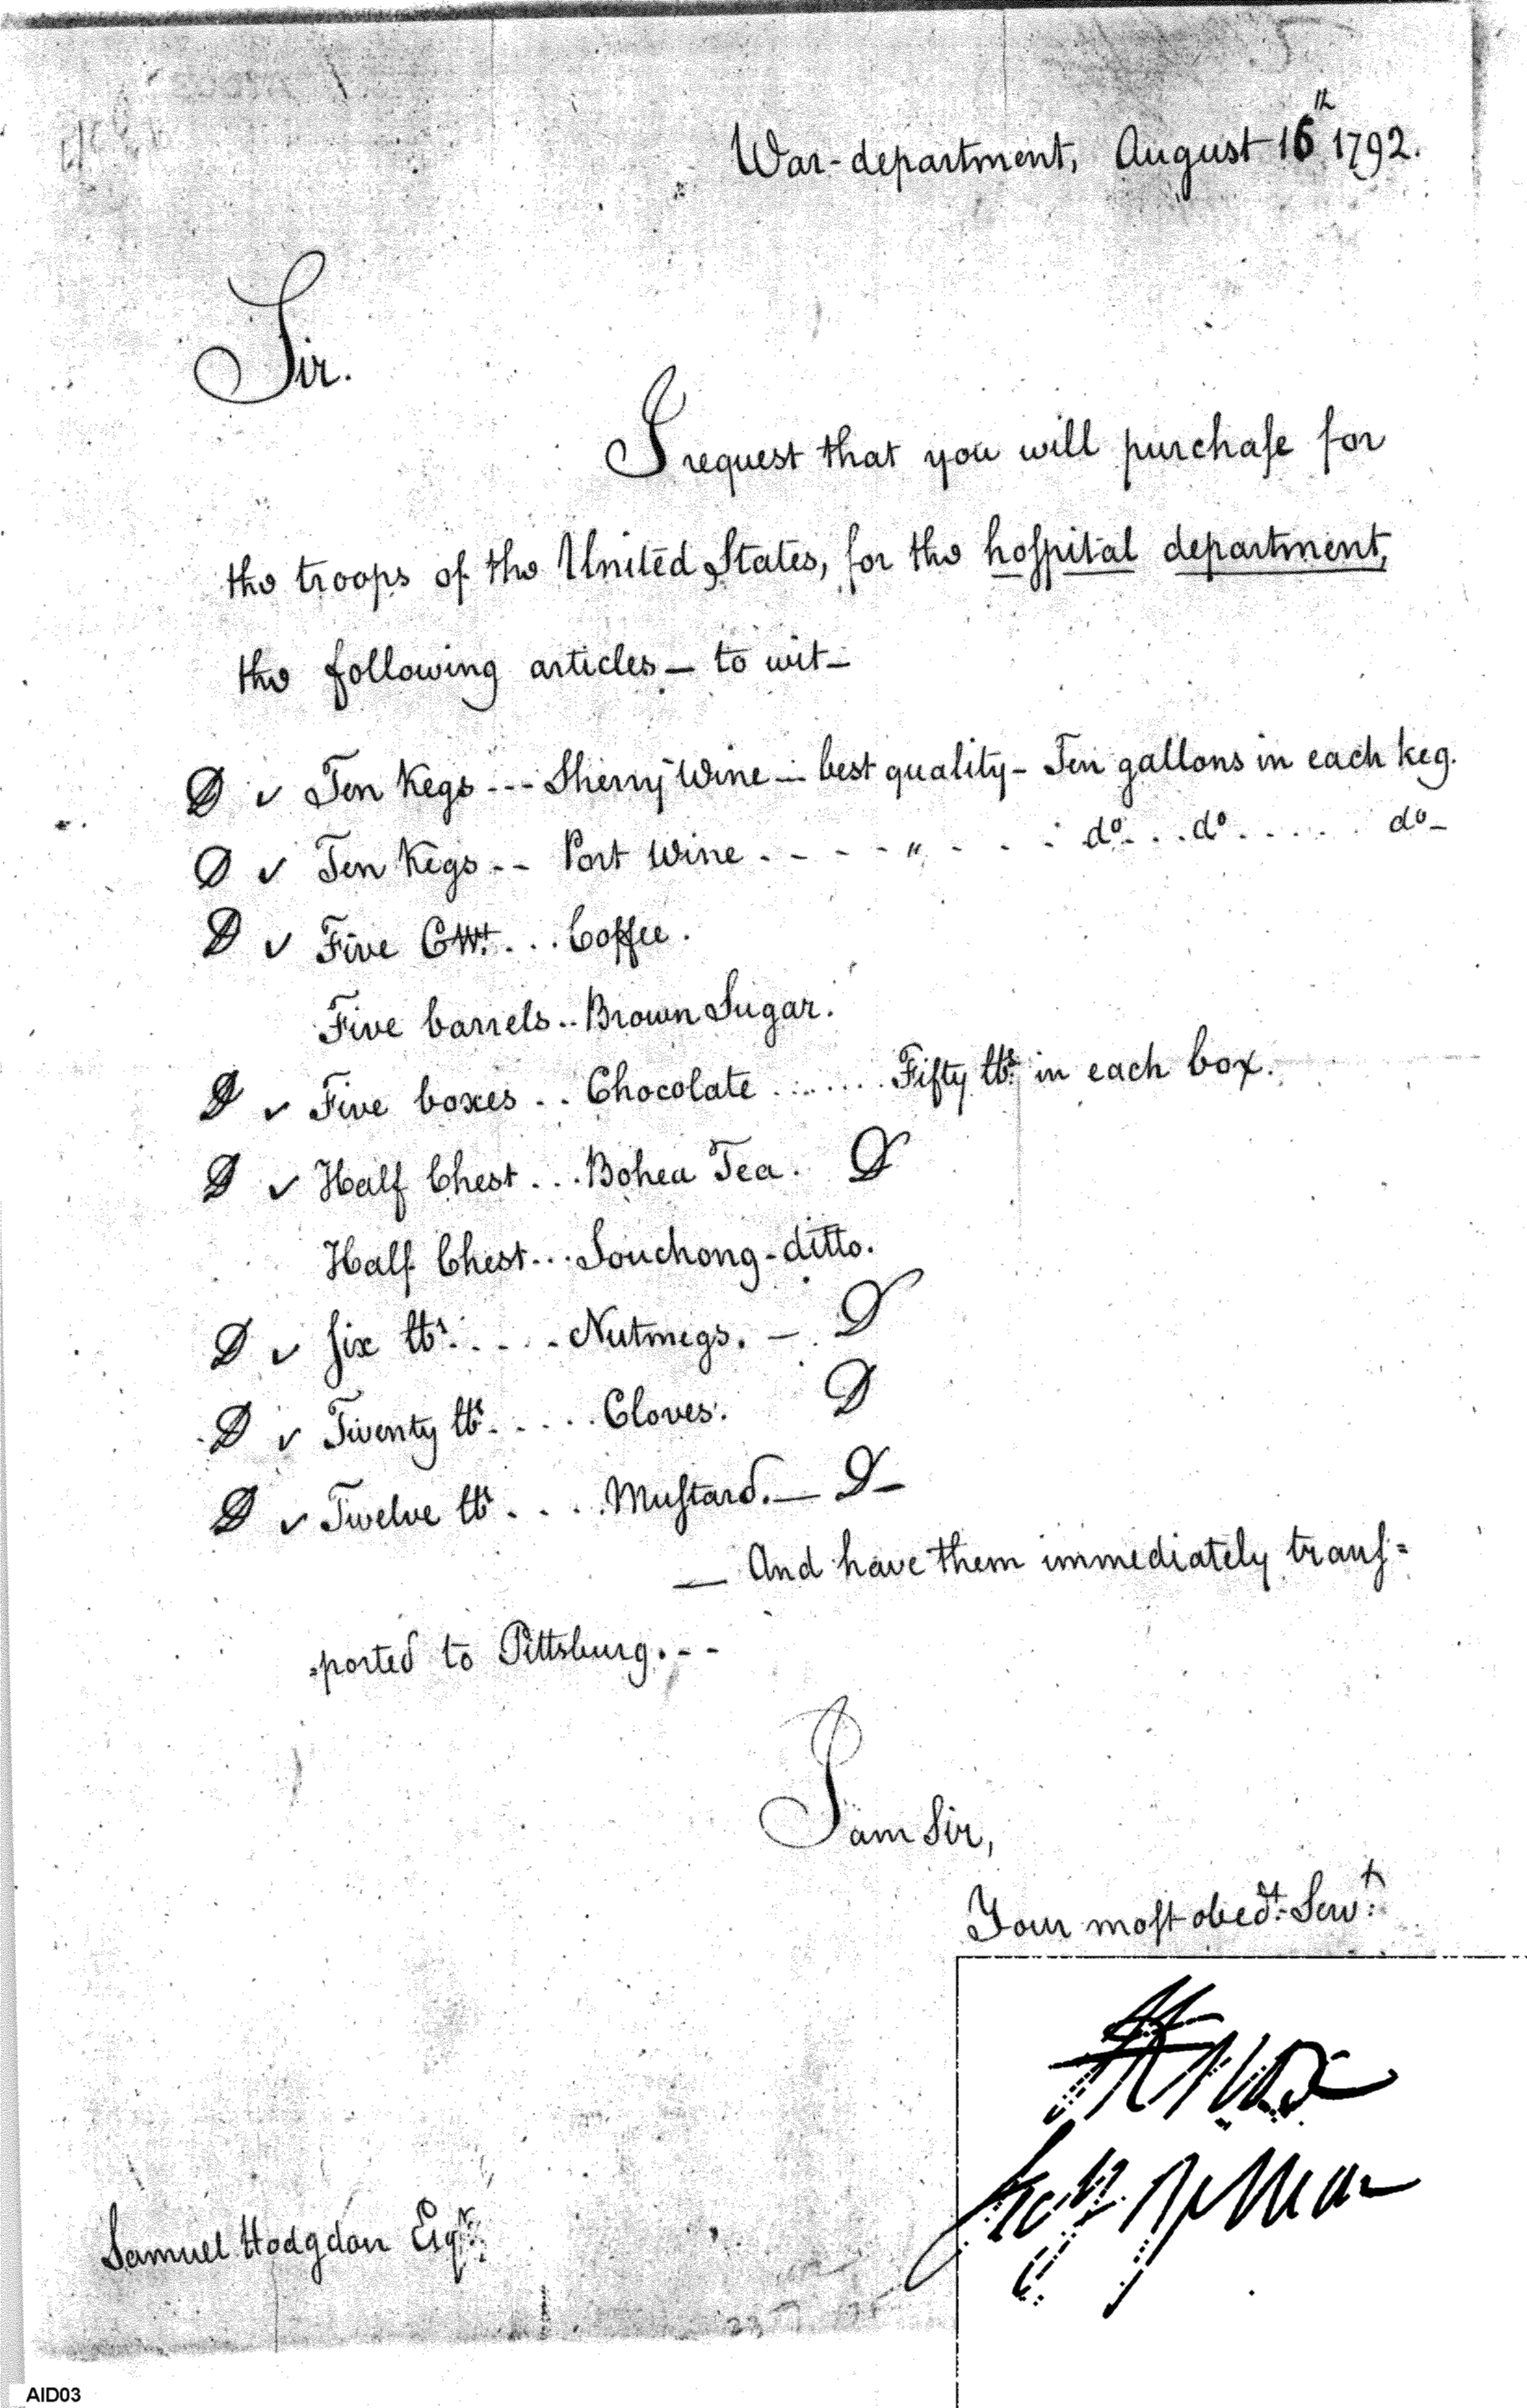 War-department, August 16th 1792.
Sir.
I request that you will purchaſe for
the troops of the United States, for the hoſpital department,
the following articles — to wit —
D ✓ Ten Kegs --- Sherry Wine — best quality - Ten gallons in each keg.
D ✓ Ten Kegs -- Port Wine . - - - " - . . do. . . do . . . . . do -
D ✓ Five Cwt. . . . Coffee.
Five barrels .. Brown Sugar.
D ✓ Five boxes . . Chocolate . . . . . . . Fifty lbs. in each box.
D ✓ Half Chest . . . Bohea Tea. D
Half Chest . . . Souchong - ditto.
D ✓ Six lbs. . . . . - Nutmegs. — D
D ✓ Twenty lbs. . . . . Cloves. D
D ✓ Twelve lbs . . . . Muſtard. — D —
— And have them immediately tranſ=
=ported to Pittsburg. - -
I am Sir,
Your moſt obedt. Servt.
HKnox
Secy of War
Samuel Hodgdon Esqr.
AID03